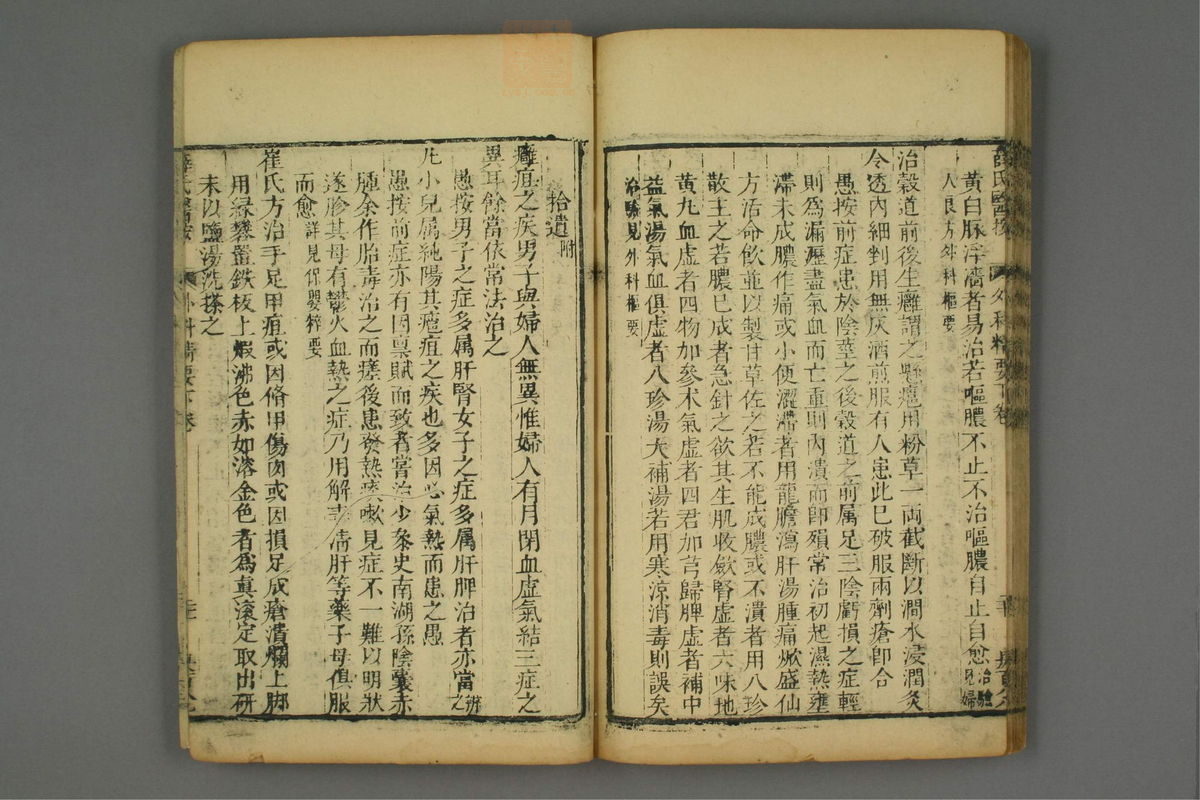 薛氏醫按 外科精要下卷
黃白脉浮濇者易治若嘔膿不止不治嘔膿自止自愈治驗見婦
人良方外科樞要
治穀道前後生癰謂之懸癰用粉草一兩截斷以澗水浸潤炙
令透內細剉用無灰酒煎服有人患此已破服兩劑瘡卽合
愚按前症患於陰莖之後穀道之前属足三陰虧損之症輕
則爲漏瀝盡氣血而亡重則內潰而卽殞常治初起濕熱壅
滯未成膿作痛或小便澀滯者用龍膽瀉肝湯腫痛焮盛仙
方活命飲並以製甘草佐之若不能成膿或不潰者用八珍
散主之若膿已成者急針之欲其生肌收斂腎虚者六味地
黄丸血虚者四物加參术氣虚者四君加芎歸脾虚者補中
益氣湯氣血俱虚者八珍湯大補湯若用寒涼消毒則誤矣
治驗見外科樞要
拾遺附
癰疽之疾男子與婦人無異惟婦人有月閉血虚氣結三症之
異耳餘當依常法治之
愚按男子之症多属肝腎女子之症多属肝脾治者亦當辨之
凡小兒属純陽其瘡疽之疾也多因心氣熱而患之愚
愚按前症亦有因禀賦而致者嘗治少叅史南湖孫陰囊赤
腫余作胎毒治之而瘥後患發熱痰嗽見症不一難以明狀
遂胗其母有鬱火血熱之症乃用解毒清肝等藥子母俱服
而愈詳見保嬰粹要
崔氏方治手足甲疽或因脩甲傷肉或因損足成瘡潰爛上脚
用緑礬置鉄板上煅沸色赤如溶金色者爲真滚定取出研
末以鹽湯洗搽之
薛氏醫按 外科精要下卷